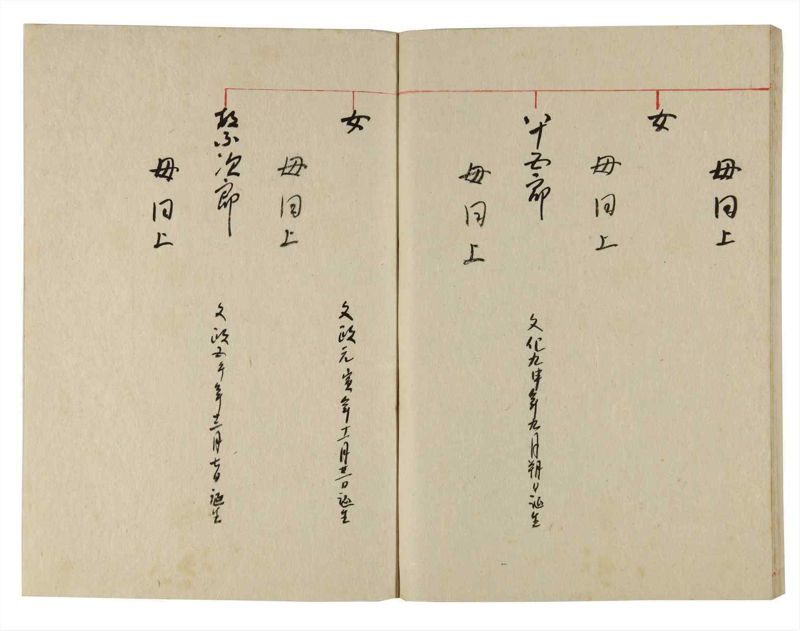 母同上
女
母同上
八十五郎
文化九申年九月朔日誕生
母同上
女
文政元寅年十一月廿一日誕生
母同上
次郎
文政五午年十二月七日誕生
母同上